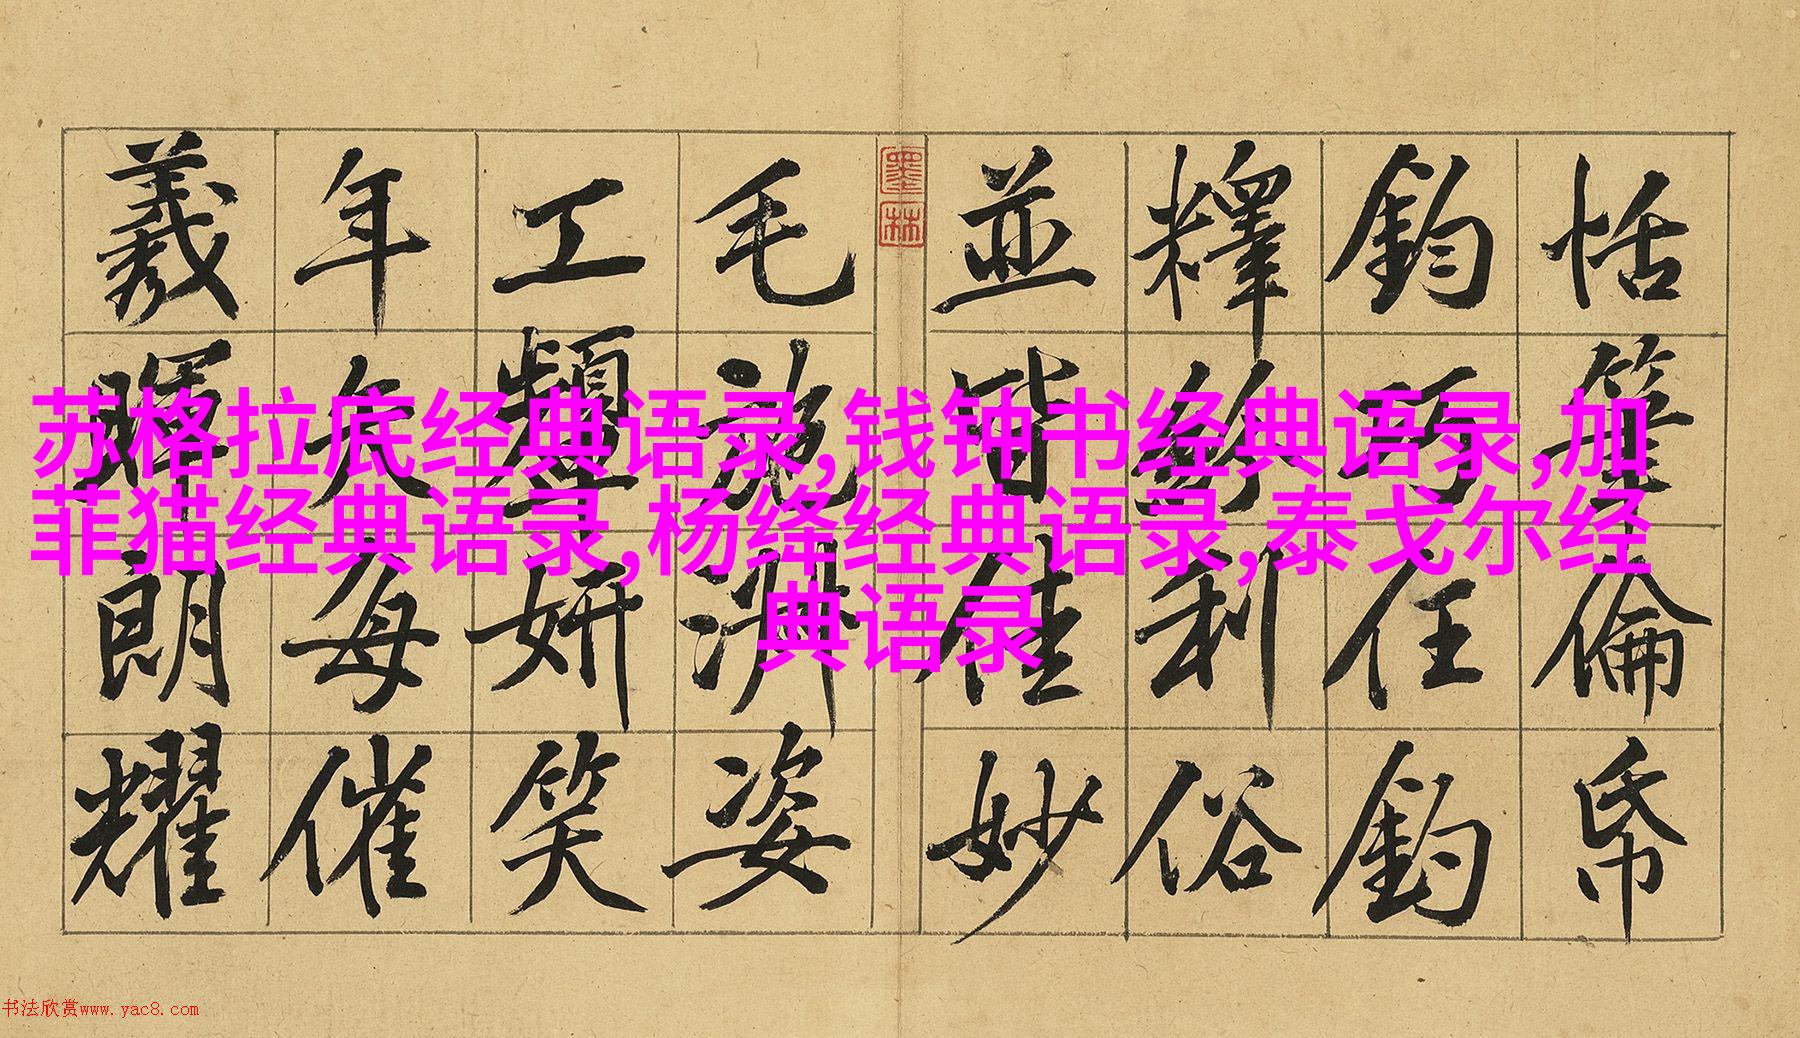 苏格拉底经典语录,钱钟书经典语录,加
菲猫经典语录,杨绛经典语录,泰戈尔经
典语录
恬筆倫帋
鈞巧任鈞
釋紛利俗
並皆佳妙
墨林
毛施淑姿
工顰妍笑
年矢每催
羲暉朗耀
书法欣赏www.yac8.com